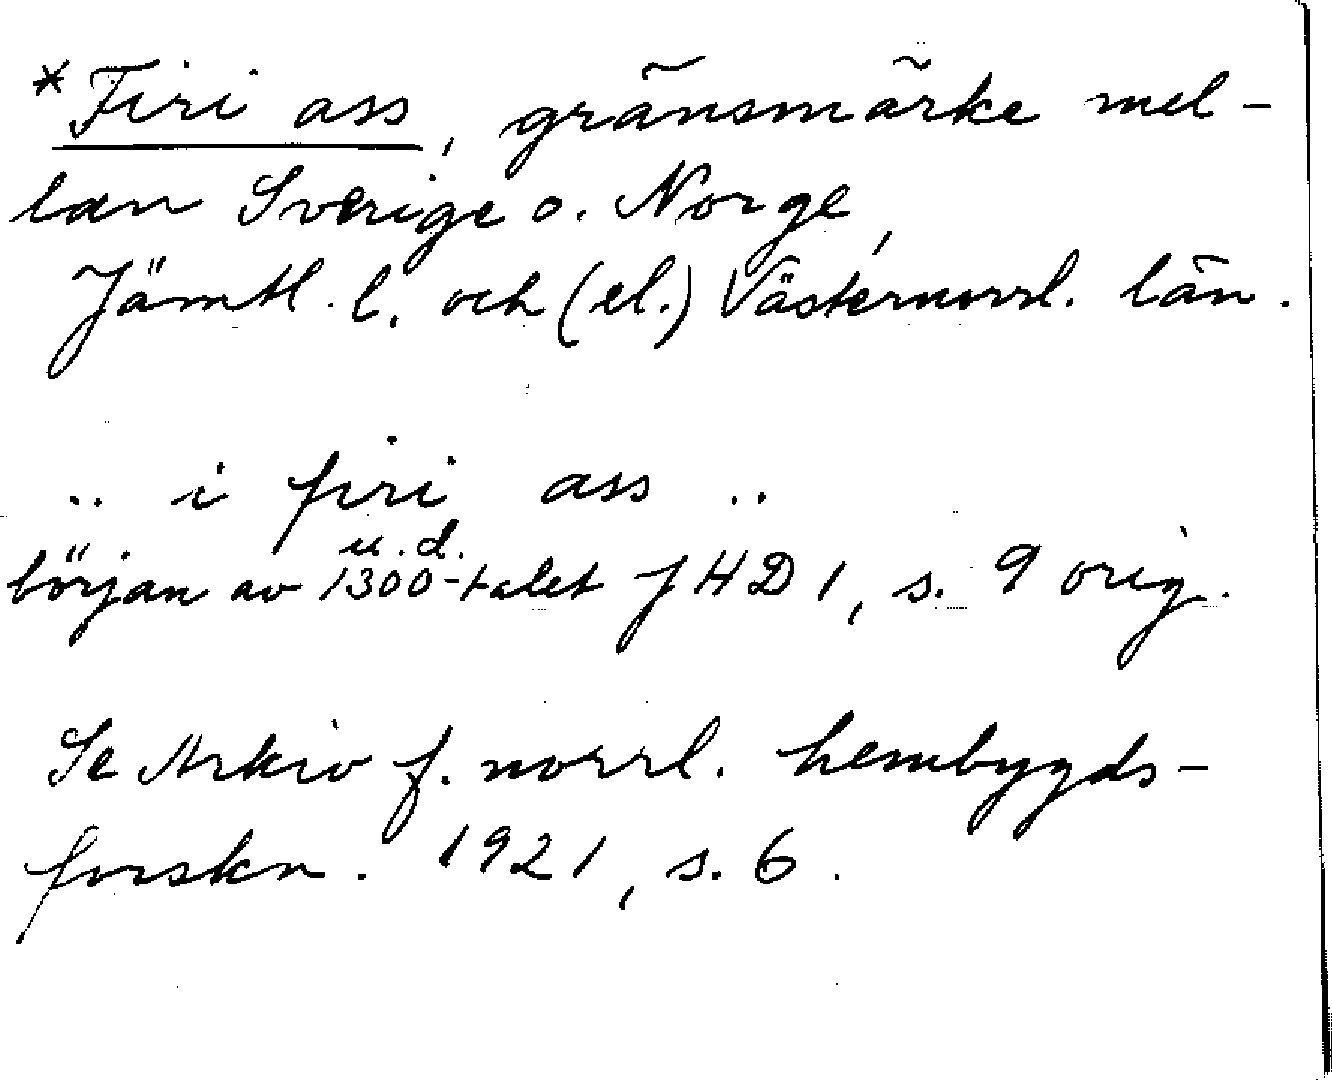 *Firi ass, gränsmärke mel-
lan Sverige o. Norge,
Jämtl. l. och (el.) Västernorrl. län.
.. i firi ass ..
u. d.
början av 1300-talet JHD 1, s. 9 orig.
Se Arkiv f. norrl. hembygds-
forskn. 1921, s. 6.